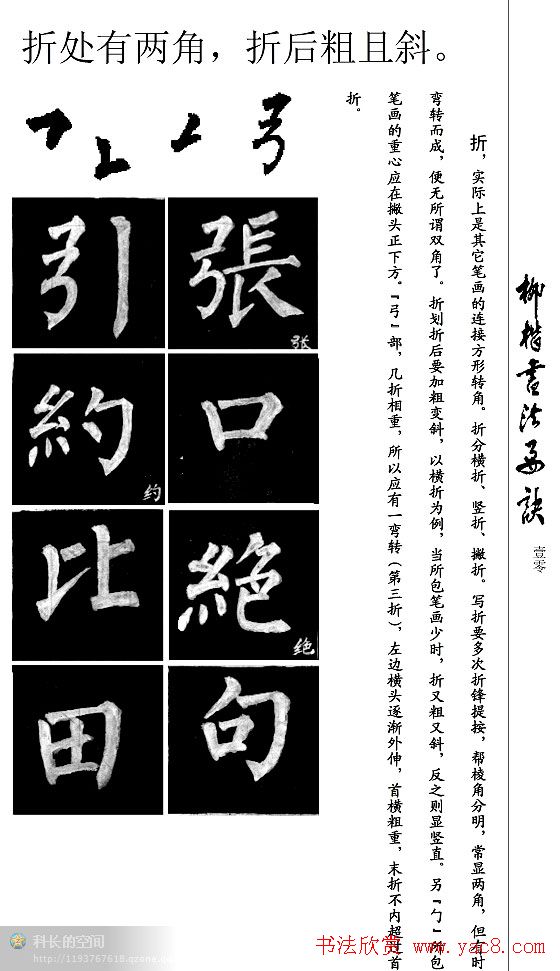 折处有两角，折后粗且斜。
柳楷書法要訣
壹零
折，实际上是其它笔画的连接方形转角。折分横折、竖折、撇折。写折要多次折锋提按，帮棱角分明，常显两角，但有时
弯转而成，便无所谓双角了。折划折后要加粗变斜，以横折为例，当所包笔画少时，折又粗又斜，反之则显竖直。另『勹』所包
笔画的重心应在撇头正下方。『弓』部，几折相重，所以应有一弯转（第三折），左边横头逐渐外伸，首横粗重，末折不内超首
折。
弓
張 张
引
口
約 约
絕 绝
比
句
田
科长的空间
http://1193767618.qzone.qq
书法欣赏 www.yac8.com